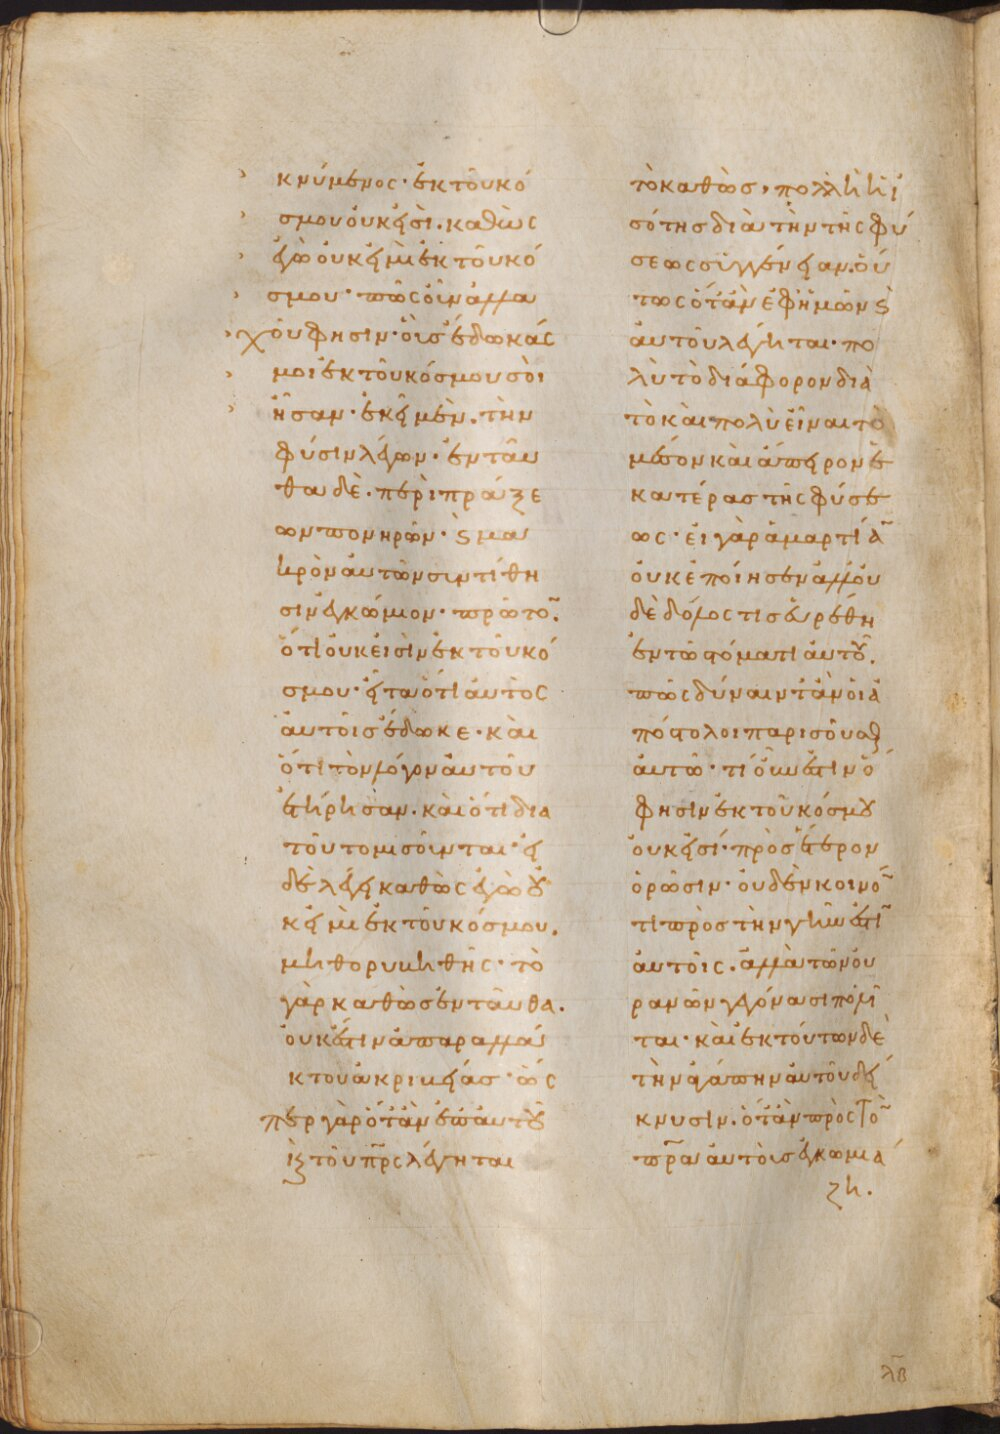 κνύμενος· ἐκ τοῦ κό
σμου οὐκ εἰσὶ. καθὼς
ἐγὼ οὐκ εἰμὶ ἐκ τοῦ κό
σμου· πῶς οὖν ἀλλα
χοῦ φησιν· οὓς ἔδωκάς
μοι ἐκ τοῦ κόσμου σοὶ
ἦσαν· ἐκεῖ μὲν. τὴν
φύσιν λέγων· ἐνταῦ
θα δὲ. περὶ πράξε
ων πονηρῶν· ϗ μα
κρὸν αὐτῶν συντίθη
σιν ἐγκώμιον· πρῶτο̃.
ὅτι οὐκ εἰσὶν ἐκ τοῦ κό
σμου· εἶτα ὅτι αὐτὸς
αὐτοῖς ἔδωκε· καὶ
ὅτι τὸν λόγον αὐτοῦ
ἐτήρησαν. καὶ ὅτι δια
τοῦτο μισοῦνται· εἰ
δὲ λέγει καθὼς ἐγὼ οὐ
κ εἰμὶ ἐκ τοῦ κόσμου.
μὴ θορυβηθῆς· τὸ
γὰρ καθὼς ἐνταῦθα.
οὐκ ἔστιν ἀπαραλλά
κτου ἀκριβείας· ὡς
περ γὰρ ὅταν ἐπ αὐτοῦ
ϗ τοῦ πρς λέγηται
τὸ καθὼς, πολλὴ ἡ ἰ
σότης διὰ τὴν τῆς φύ
σεως συγγένειαν. οὕ
τως ὅταν ἐφ ἡμῶν ϗ
αὐτοῦ λέγηται· πο
λὺ τὸ διάφορον διὰ
τὸ καὶ πολὺ εἶναι τὸ
μέσον καὶ ἄπειρον ἑ
κατέρας τῆς φύσε
ως· εἰ γὰρ ἁμαρτία̃
οὐκ ἐποίησεν ἀλλ οὐ
δὲ δόλος τις εὑρέθη
ἐν τῶ στόματι αὐτοῦ.
πῶς δύναιντ ἂν οἱ ἀ
πόστολοι παρισοῦσθαι
αὐτῶ· τί οὖν ἐστιν ὅ
φησιν ἐκ τοῦ κόσμου
οὐκ εἰσί· πρὸς ἕτερον
ὁρῶσιν· οὐδὲν κοινο̃
τι πρὸς τὴν γῆν ἐστι̃
αὐτοῖς. ἀλλὰ τῶν οὐ
ρανῶν γεγόνασι πολῖ
ται· καὶ ἐκ τούτων δὲ
τὴν ἀγάπην αὐτοῦ δεί
κνυσιν. ὅταν πρὸς το̃
πρα αὐτοὺς ἐγκωμιά
ζη.
λβ